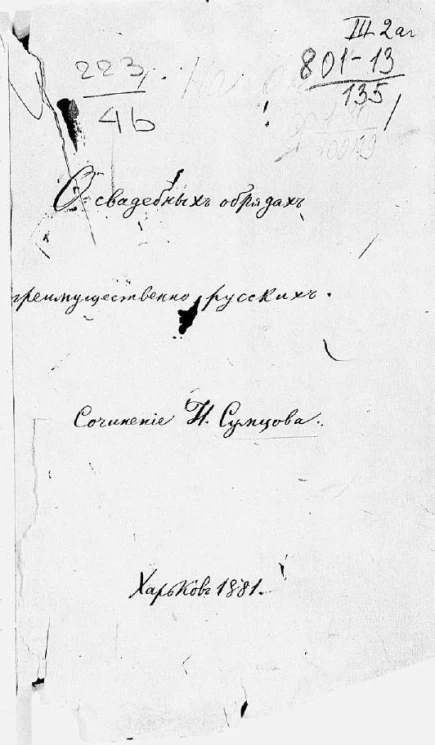 III 2аг
223,
46
801-13
135
О свадебныхъ обрядахъ
преимущественно русскихъ.
Сочиненіе Н. Сумцова.
Харьковъ 1881.